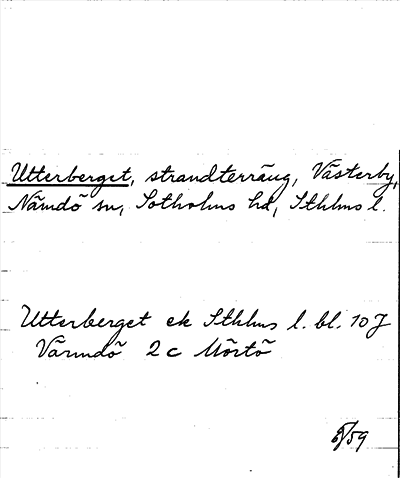 Utterberget, strandterräng, Västerby,
Nämdö sn, Sotholms hd, Sthlms l.
Utterberget ek Sthlms l. bl. 10 J
Värmdö 2 c Mörtö
/59